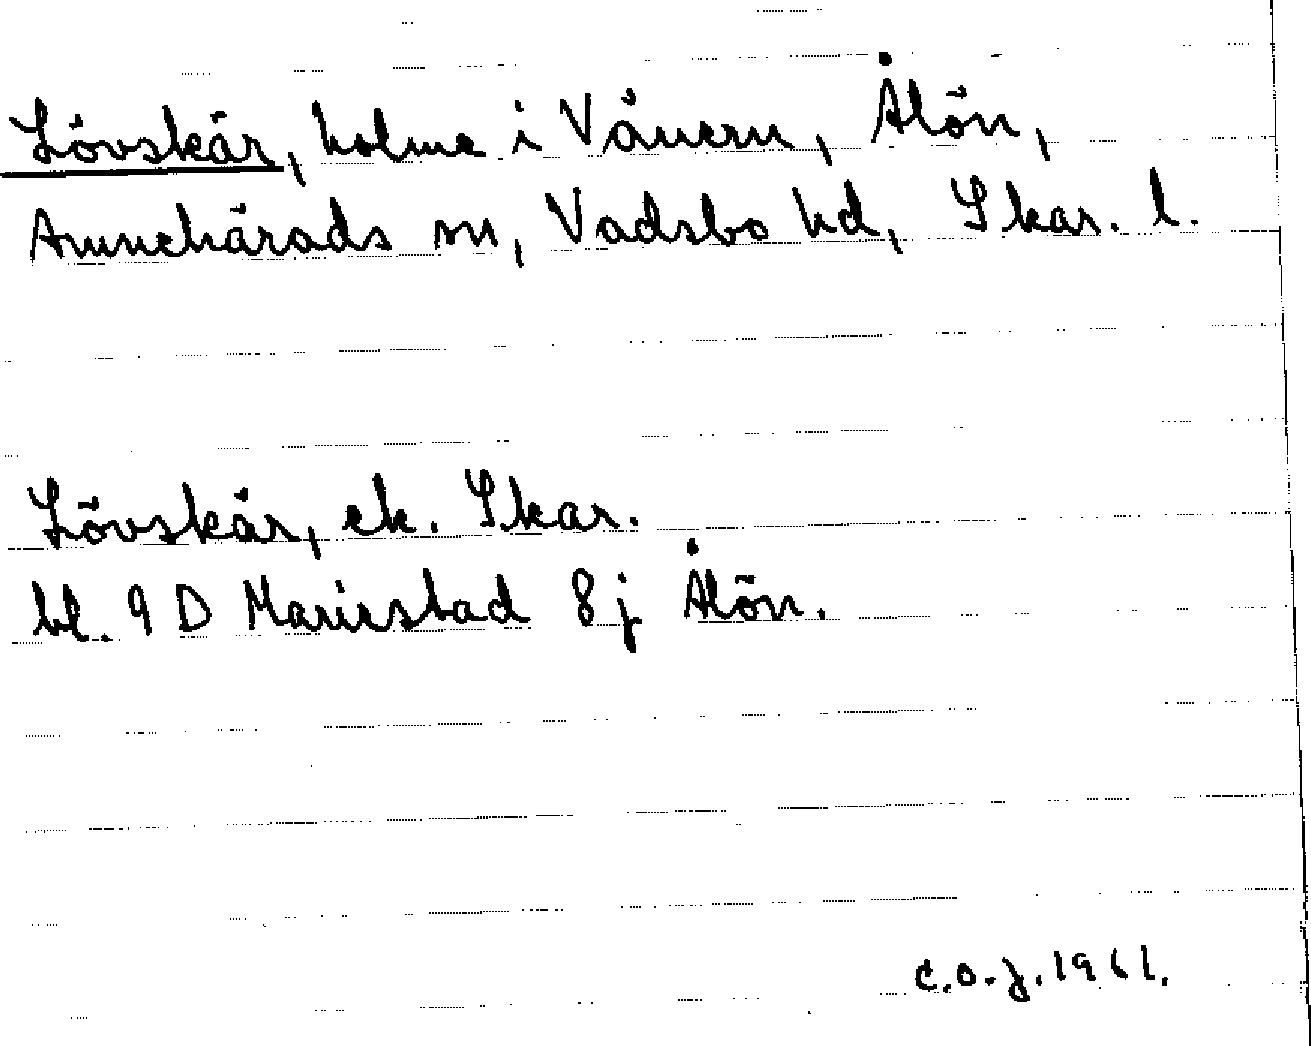 Lövskär, holme i Vänern, Ålön,
Amnehärads sn, Vadsbo hd, Skar. l.
Lövskär, ek. Skar.
bl. 9 D Mariestad 8 j Ålön.
C.O.J. 1961.